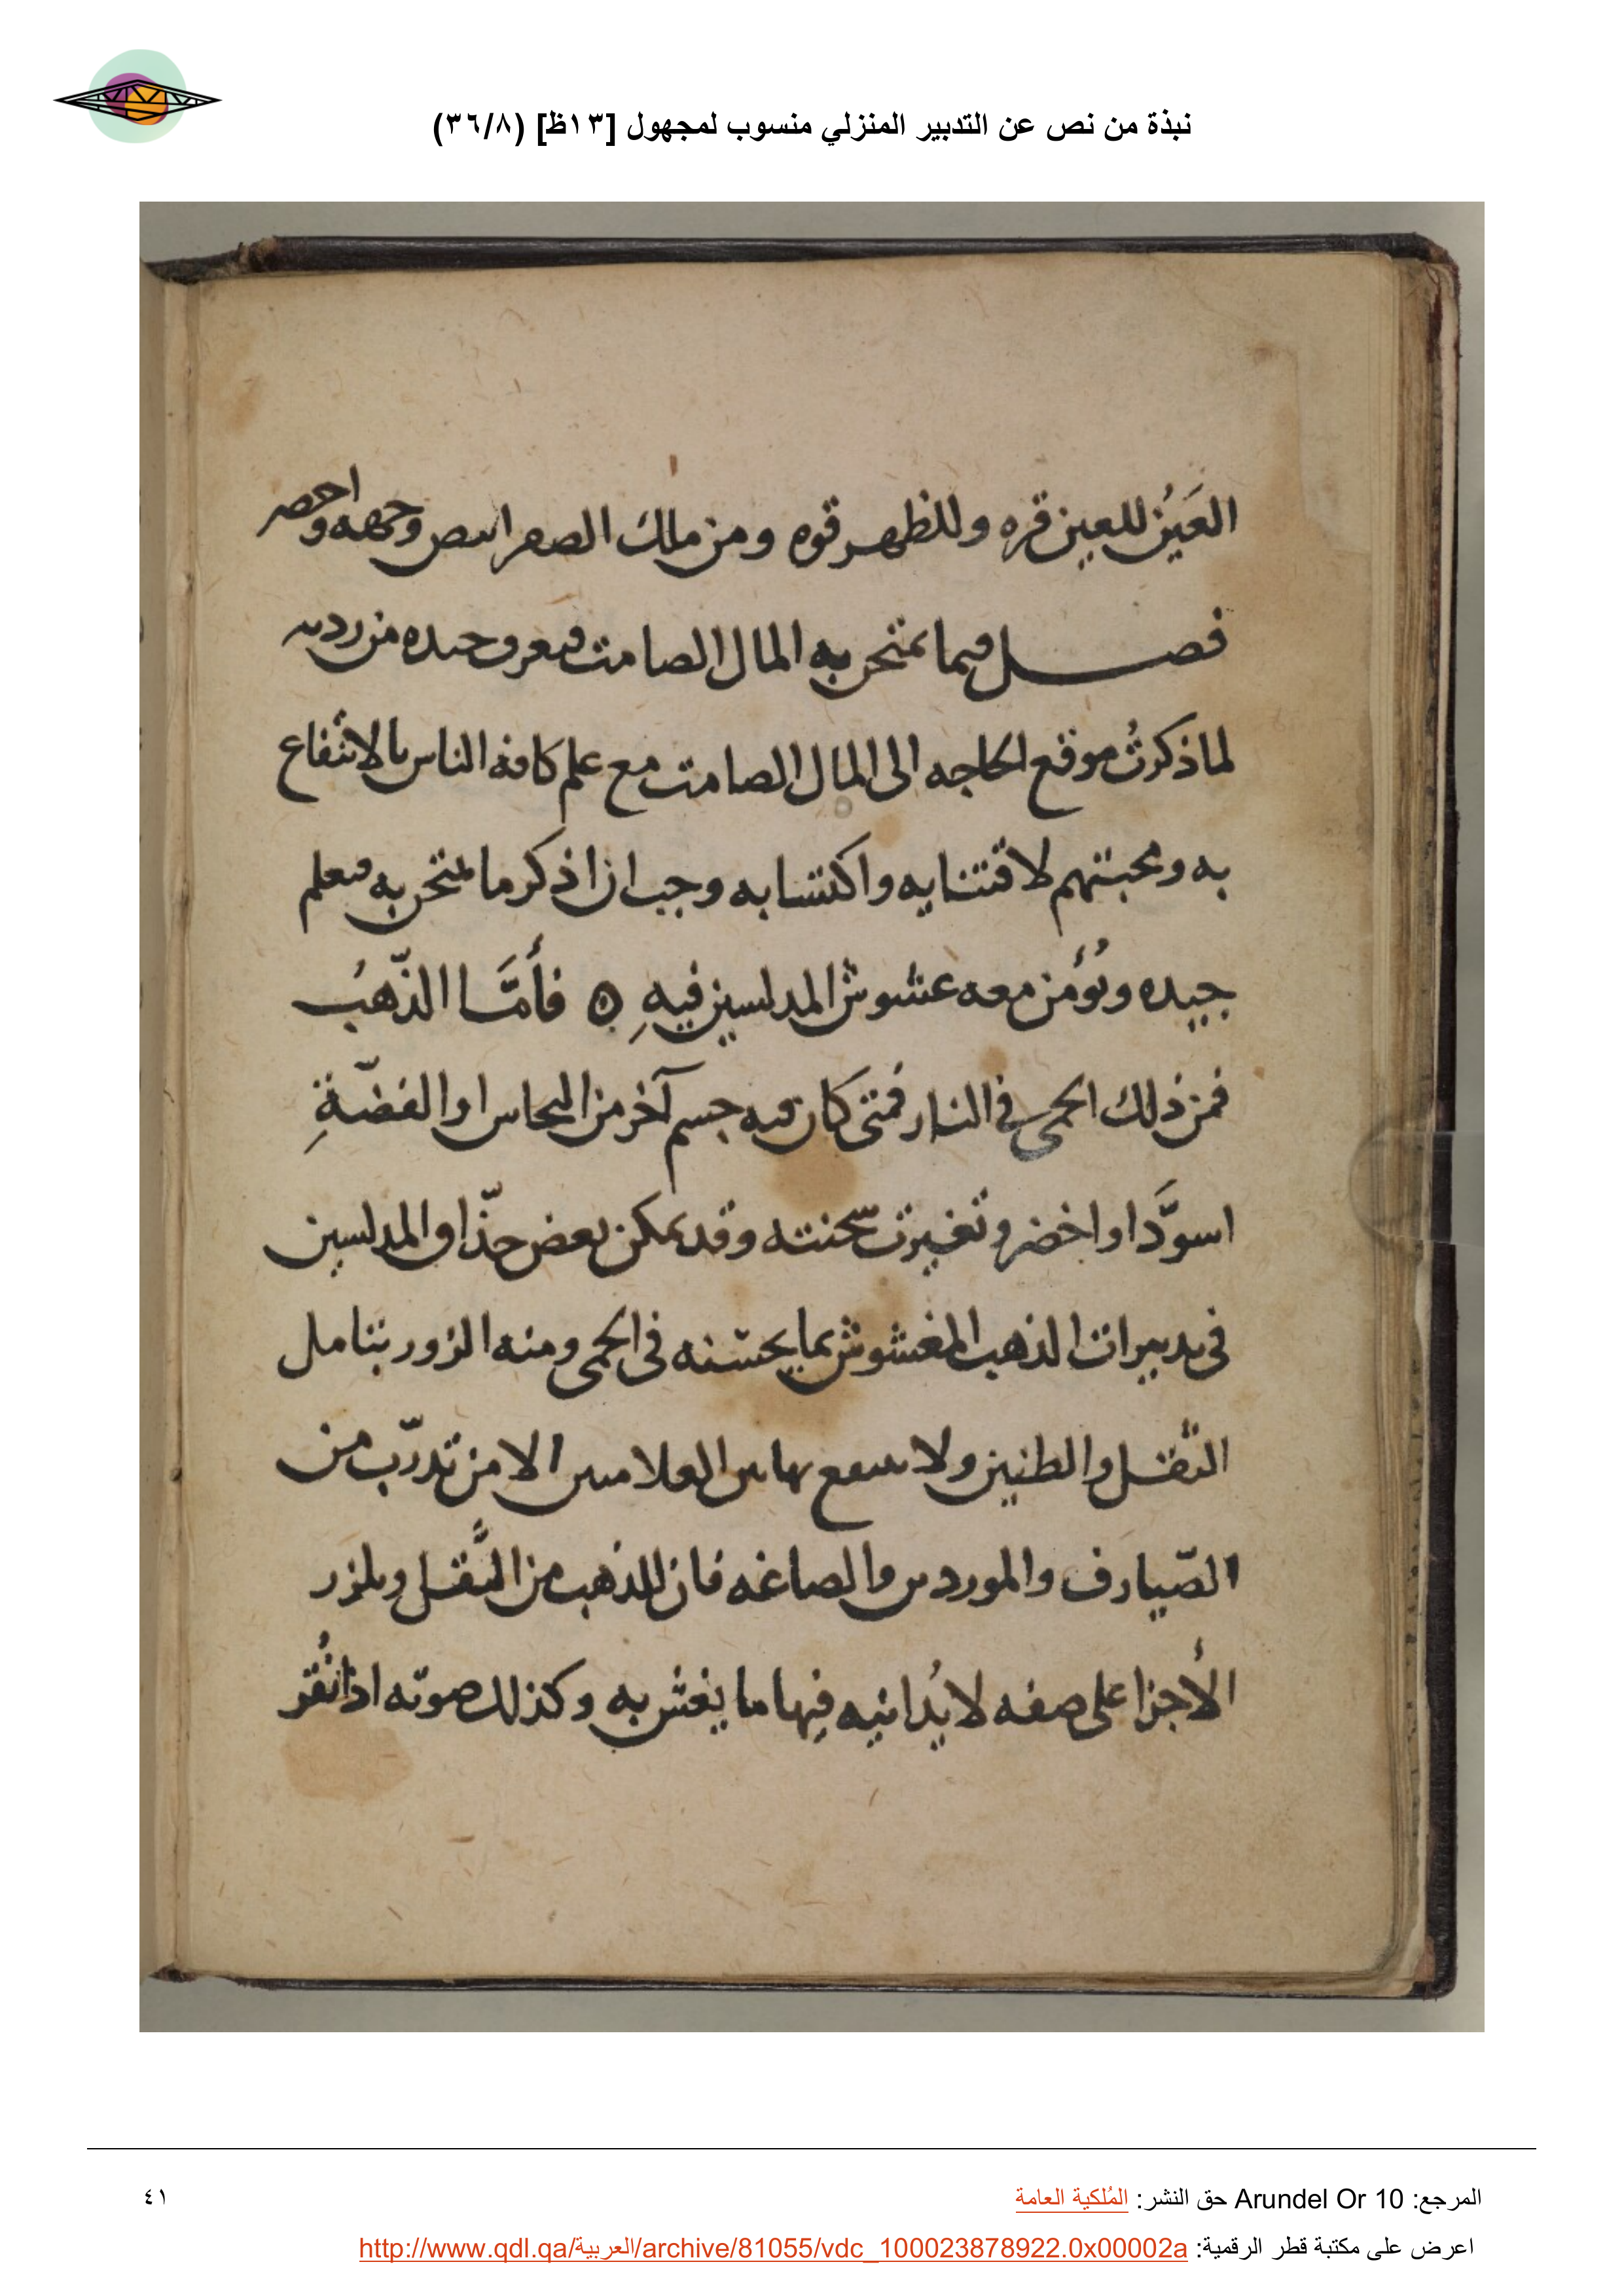 نبذة من نص عن التدبير المنزلي منسوب لمجهول [١٣ظ] (٣٦/٨)
العَينُ للعين قره وللظهر قوه ومن ملك الصفر ابيض وجهه واخضر
فصل فيما يمتحن به المال الصامت فيعرف جيده من رديه
لما ذكرتُ موقع الحاجه الى المال الصامت مع علم كافه الناس بالانتفاع
به ومحبتهم لاقتنايه واكتسابه وجب ان اذكر ما يمتحن به فيعلم
جيده ويُؤمن معه غشوش المدلسين فيهِ ۞ فأمَّا الذّهبُ
فمن ذلك الحمى فى النار فمتى كان فيه جسم آخر من النحاس او الفضّةِ
اسودَّ او اخضر وتغيرت سحنته وقد يمكن بعض حذّاق المدلسين
فى تدبيرات الذهب المغشوش بما يحسّنه فى الحمى ومنه الزور بتامل
الثقل والطنين ولا ينتفع بهاتين العلامتين الا من تدرّب من
الصّيارف والموردين والصاغه فان للذهب من الثِّقل وتلزز
الأجزا على صفه لا يُدانيه فيها ما يغش به وكذلك صوته اذا نُقر
المرجع: Arundel Or 10 حق النشر: المُلكية العامة
٤١
اعرض على مكتبة قطر الرقمية: http://www.qdl.qa/العربية/archive/81055/vdc_100023878922.0x00002a